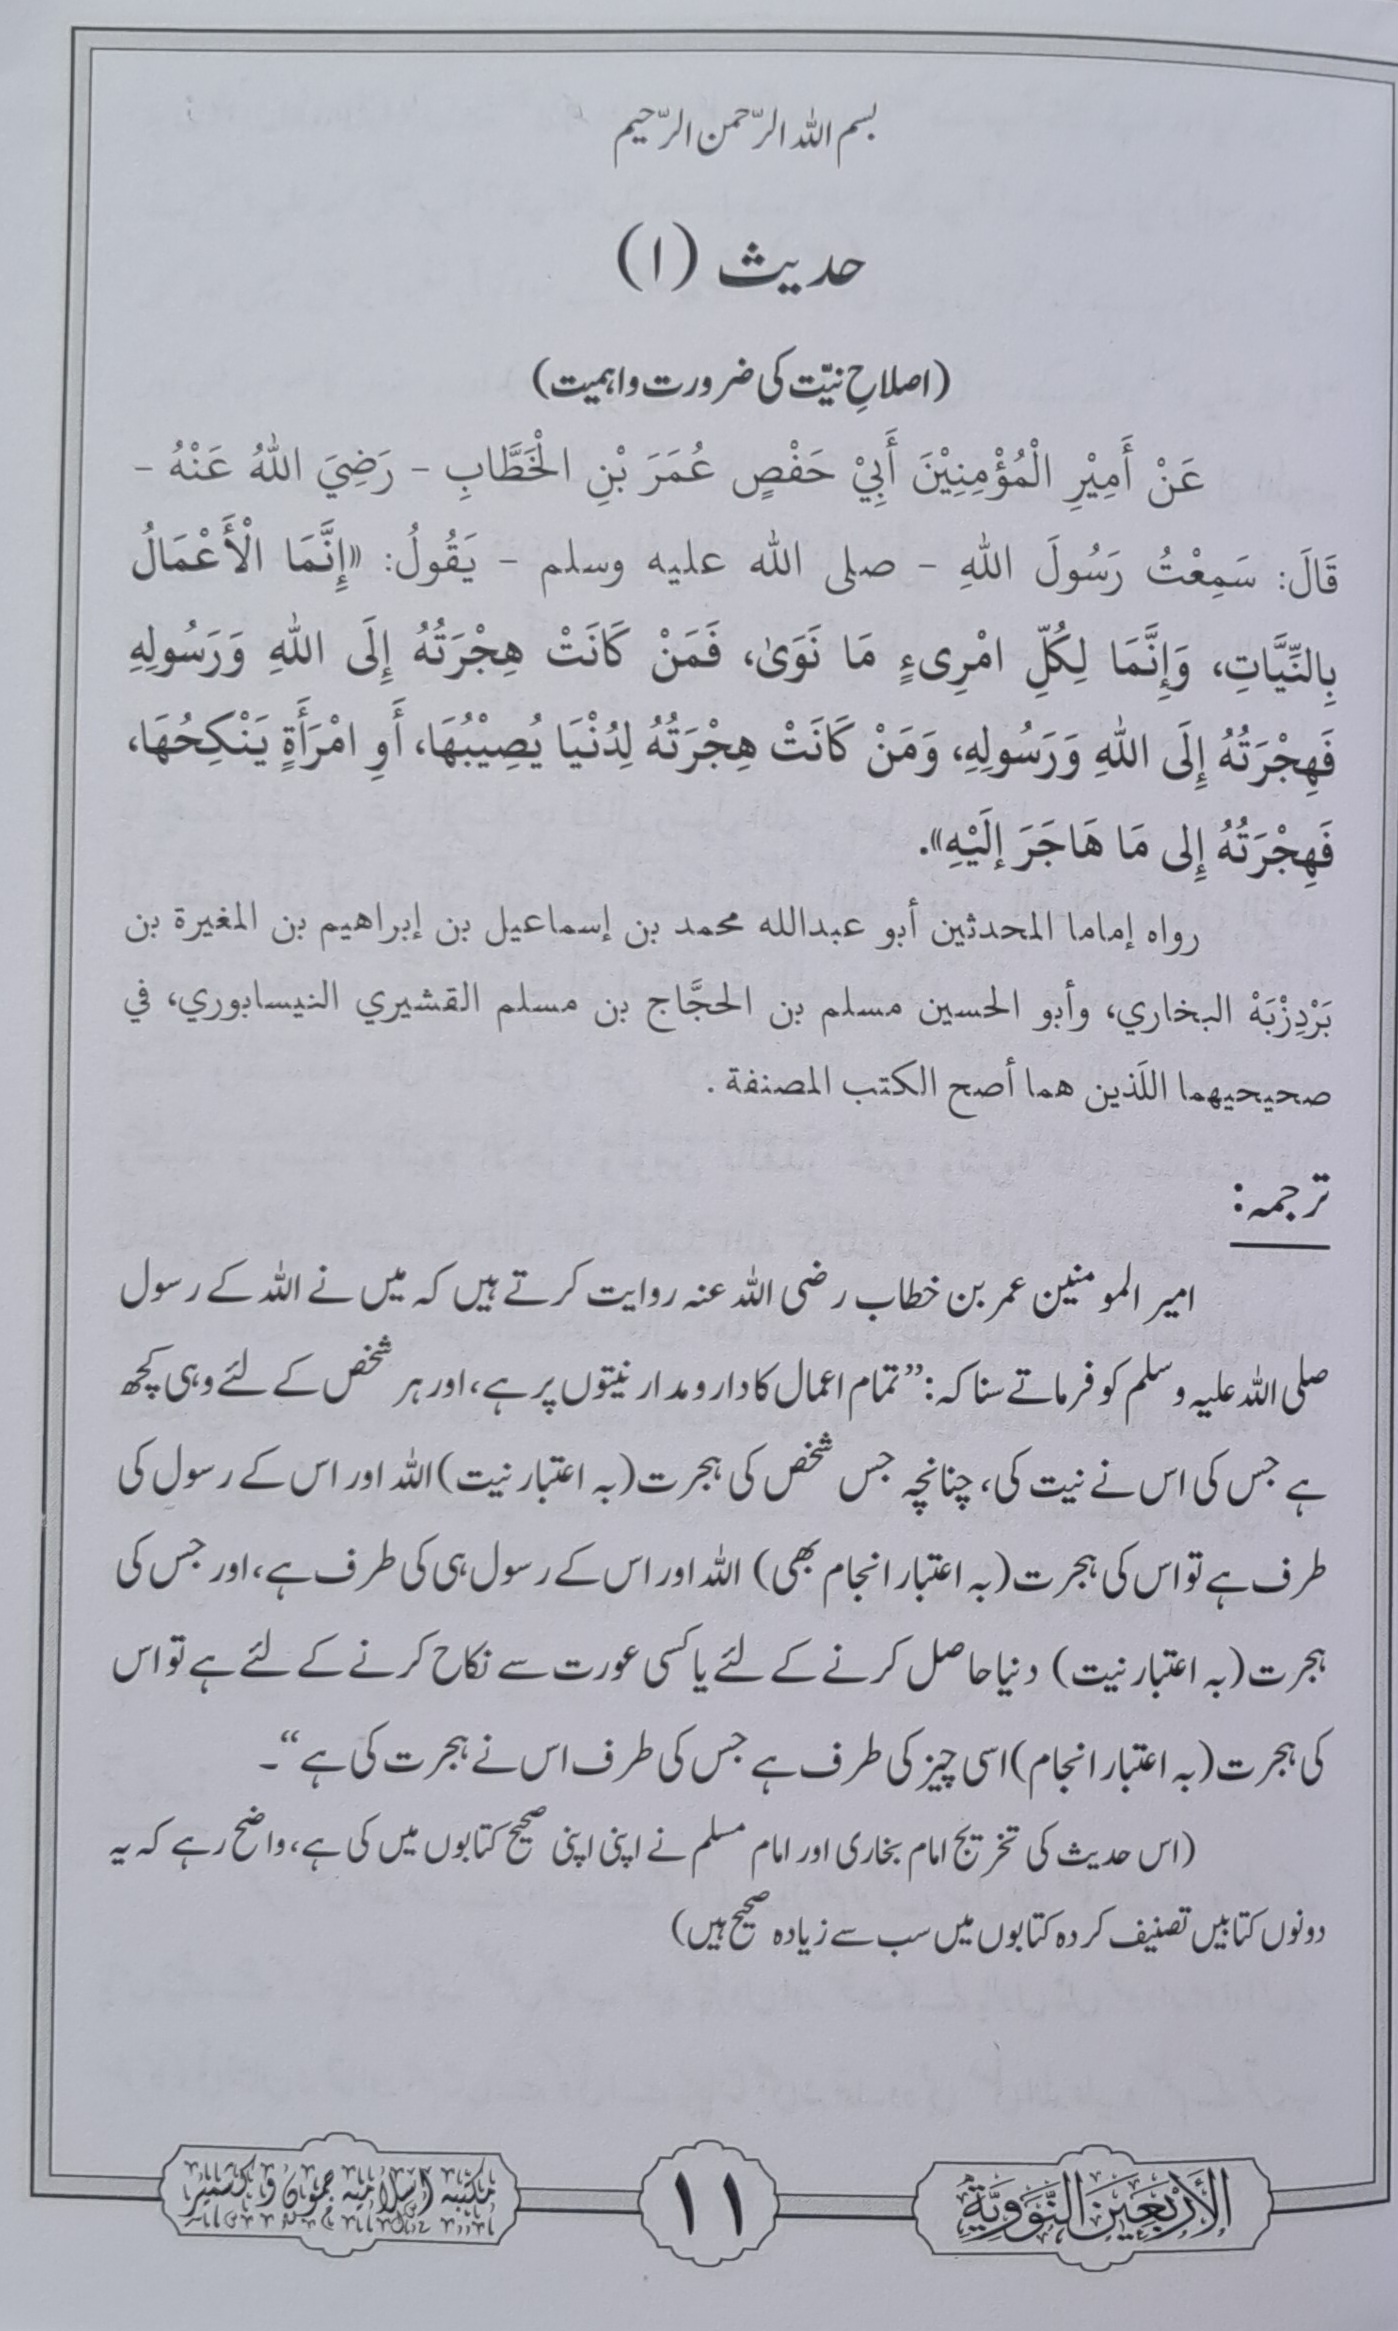 بسم اللہ الرّحمن الرّحیم
حدیث (۱)
(اصلاحِ نیّت کی ضرورت و اہمیت)
عَنْ أَمِيْرِ الْمُؤْمِنِيْنَ أَبِيْ حَفْصٍ عُمَرَ بْنِ الْخَطَّابِ - رَضِيَ اللهُ عَنْهُ -
قَالَ: سَمِعْتُ رَسُولَ اللهِ - صلى الله عليه وسلم - يَقُولُ: «إِنَّمَا الْأَعْمَالُ
بِالنِّيَّاتِ، وَإِنَّمَا لِكُلِّ امْرِىءٍ مَا نَوَىٰ، فَمَنْ كَانَتْ هِجْرَتُهُ إِلَى اللهِ وَرَسُولِهِ
فَهِجْرَتُهُ إِلَى اللهِ وَرَسُولِهِ، وَمَنْ كَانَتْ هِجْرَتُهُ لِدُنْيَا يُصِيْبُهَا، أَوِ امْرَأَةٍ يَنْكِحُهَا،
فَهِجْرَتُهُ إِلى مَا هَاجَرَ إلَيْهِ».
رواه إماما المحدثين أبو عبدالله محمد بن إسماعيل بن إبراهيم بن المغيرة بن
بَرْدِزْبَهْ البخاري، وأبو الحسين مسلم بن الحجَّاج بن مسلم القشيري النيسابوري، في
صحيحيهما اللَذين هما أصح الكتب المصنفة .
ترجمہ:
امیر المومنین عمر بن خطاب رضی اللہ عنہ روایت کرتے ہیں کہ میں نے اللہ کے رسول
صلی اللہ علیہ وسلم کو فرماتے سنا کہ: ”تمام اعمال کا دارومدار نیتوں پر ہے، اور ہر شخص کے لئے وہی کچھ
ہے جس کی اس نے نیت کی، چنانچہ جس شخص کی ہجرت (بہ اعتبار نیت) اللہ اور اس کے رسول کی
طرف ہے تو اس کی ہجرت (بہ اعتبار انجام بھی) اللہ اور اس کے رسول ہی کی طرف ہے، اور جس کی
ہجرت (بہ اعتبار نیت) دنیا حاصل کرنے کے لئے یا کسی عورت سے نکاح کرنے کے لئے ہے تو اس
کی ہجرت (بہ اعتبار انجام) اسی چیز کی طرف ہے جس کی طرف اس نے ہجرت کی ہے“۔
(اس حدیث کی تخریج امام بخاری اور امام مسلم نے اپنی اپنی صحیح کتابوں میں کی ہے، واضح رہے کہ یہ
دونوں کتابیں تصنیف کردہ کتابوں میں سب سے زیادہ صحیح ہیں)
الأَرْبَعِينَ النَّوَوِيَّةِ
١١
مکتبہ اسلامیہ جموں و کشمیر